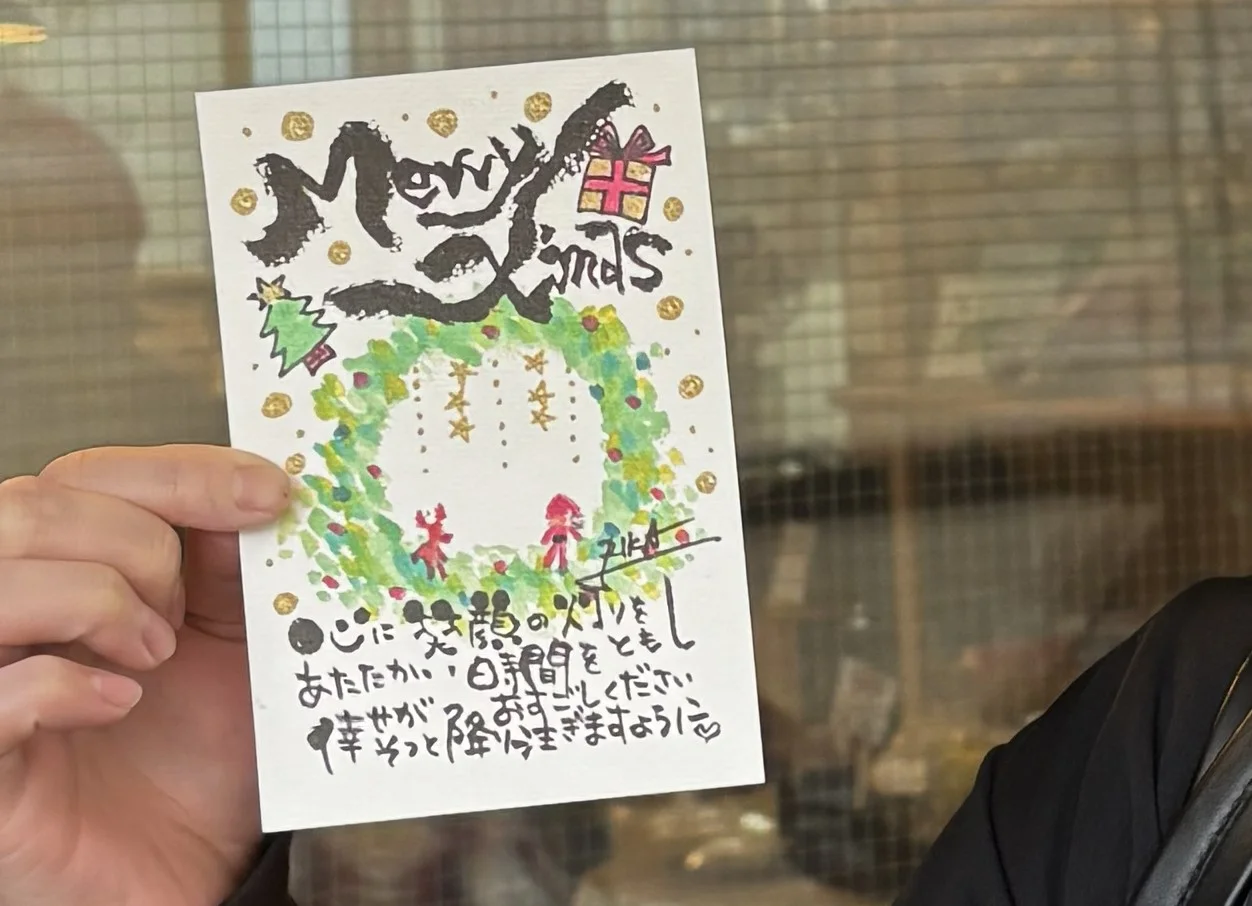 Merry
Xmas
心に笑顔の灯りをともし
あたたかい時間を
おすごしください
倖せが
そっと降り注ぎますように♡